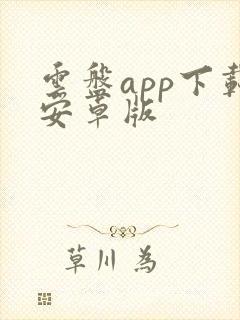 雲盤app下載
安草版
草川為